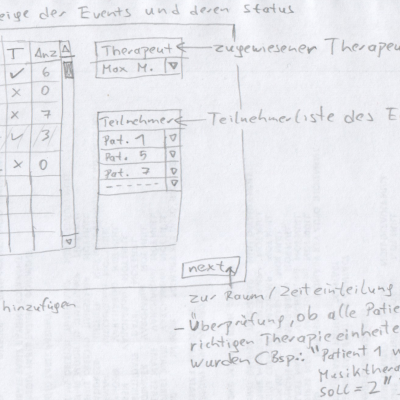 eige der Events und deren Status
T Anz
Therapeut
zugewiesener Therapeu
✓ 6
Max M.
x 0
x 7
Teilnehmer
Teilnehmerliste des E
✓ 3
Pat. 1
x 0
Pat. 5
Pat. 7
next
hinzufügen
zur Raum/Zeiteinteilung
- Überprüfung, ob alle Patie
richtigen Therapieeinheite
wurden (Bsp.: "Patient 1 w
Musikthera
soll = 2"